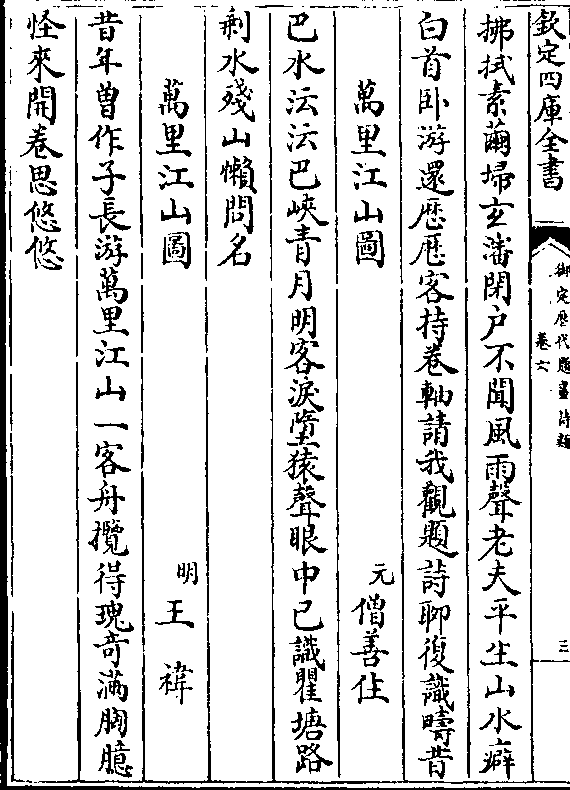 欽定四庫全書
御定歴代題畫詩類
卷六
三
拂拭素繭埽玄瀋閉户不聞風雨聲老夫平生山水癖
白首卧游還歴歴客持卷軸請我觀題詩聊復識疇昔
萬里江山圖 元 僧善住
巴水沄沄巴峽青月明客淚墮猿聲眼中已識瞿塘路
剰水殘山懶問名
萬里江山圖 明 王褘
昔年曽作子長游萬里江山一客舟攬得瑰竒滿胸臆
怪來開卷思悠悠